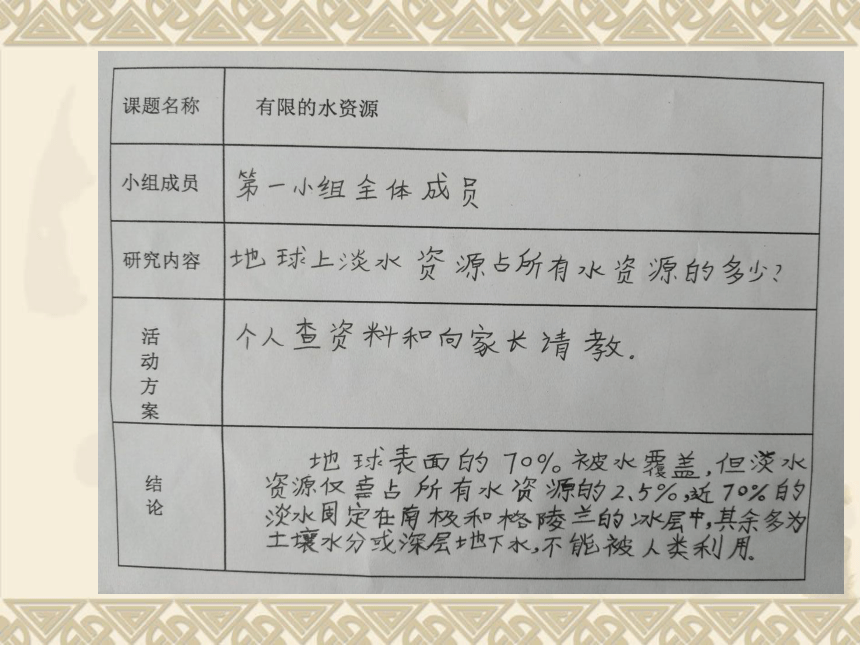 课题名称 有限的水资源
小组成员 第一小组全体成员
研究内容 地球上淡水资源占所有水资源的多少?
活动方案 个人查资料和向家长请教.
结论
地球表面的70%被水覆盖,但淡水
资源仅占所有水资源的2.5%,近70%的
淡水固定在南极和格陵兰的冰层中,其余多为
土壤水分或深层地下水,不能被人类利用.